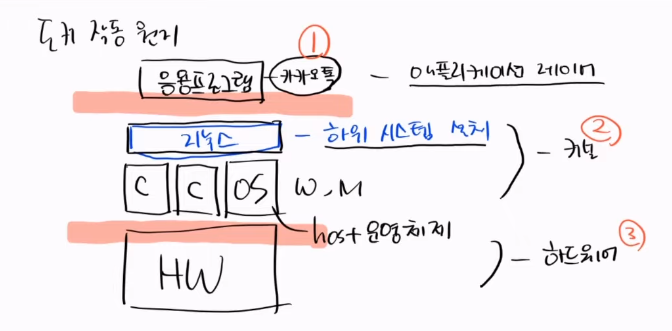 도커 작동 원리
①
응용프로그램 카카오톡 - 애플리케이션 레이어
리눅스 - 하위 시스템 설치
②
C C OS W, M - 커널
host 운영체제
③
HW - 하드웨어